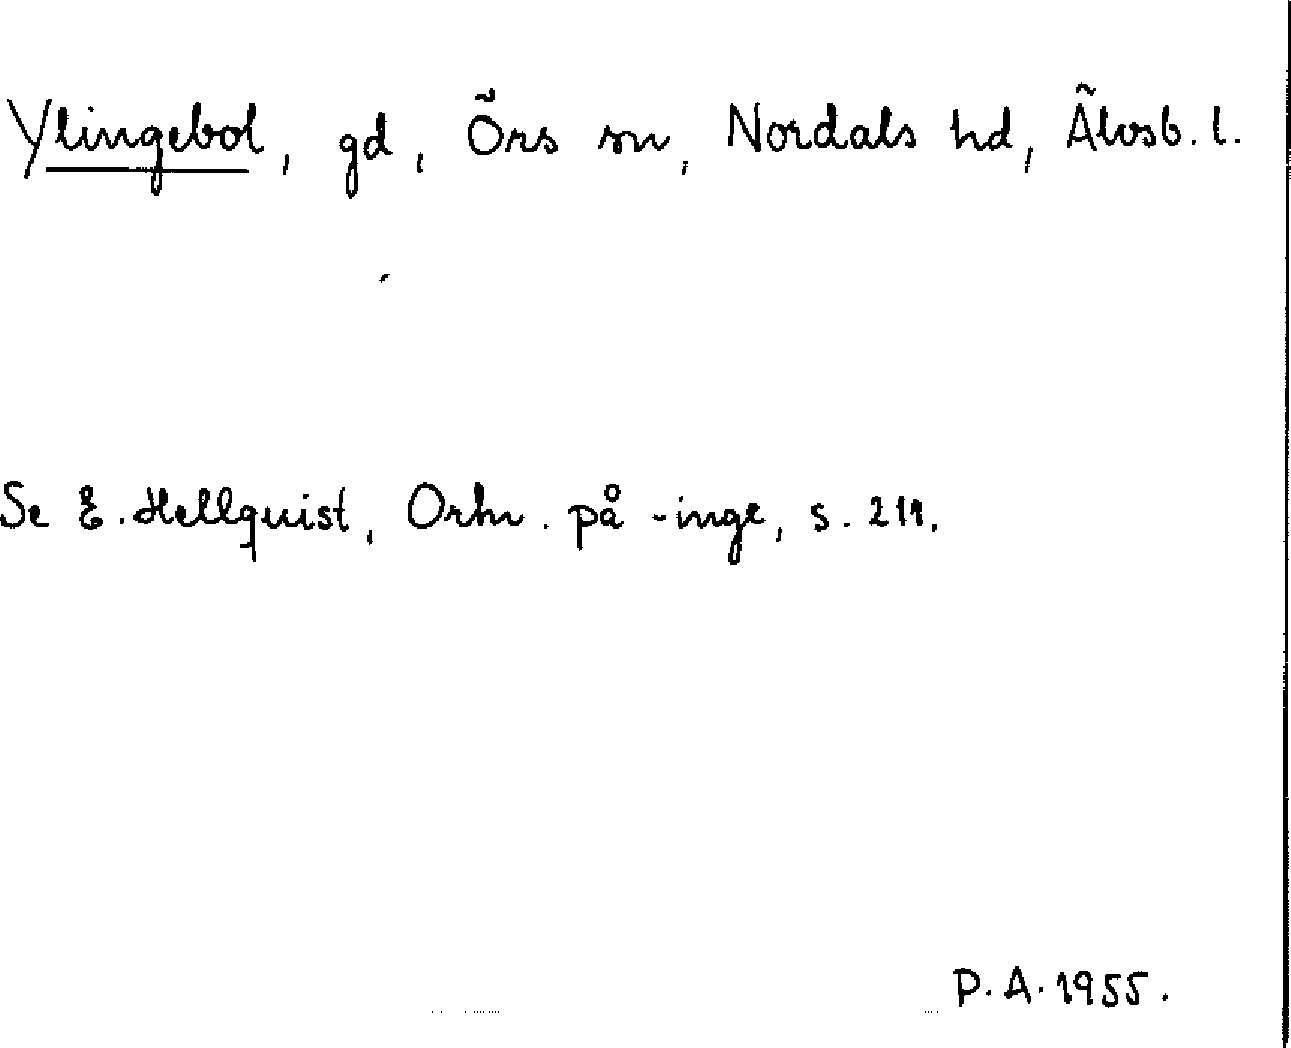 Ylingebol, gd, Örs sn, Nordals hd, Älvsb. l.
Se E. Hellquist, Ortn. på -inge, s. 211.
P. A. 1955.